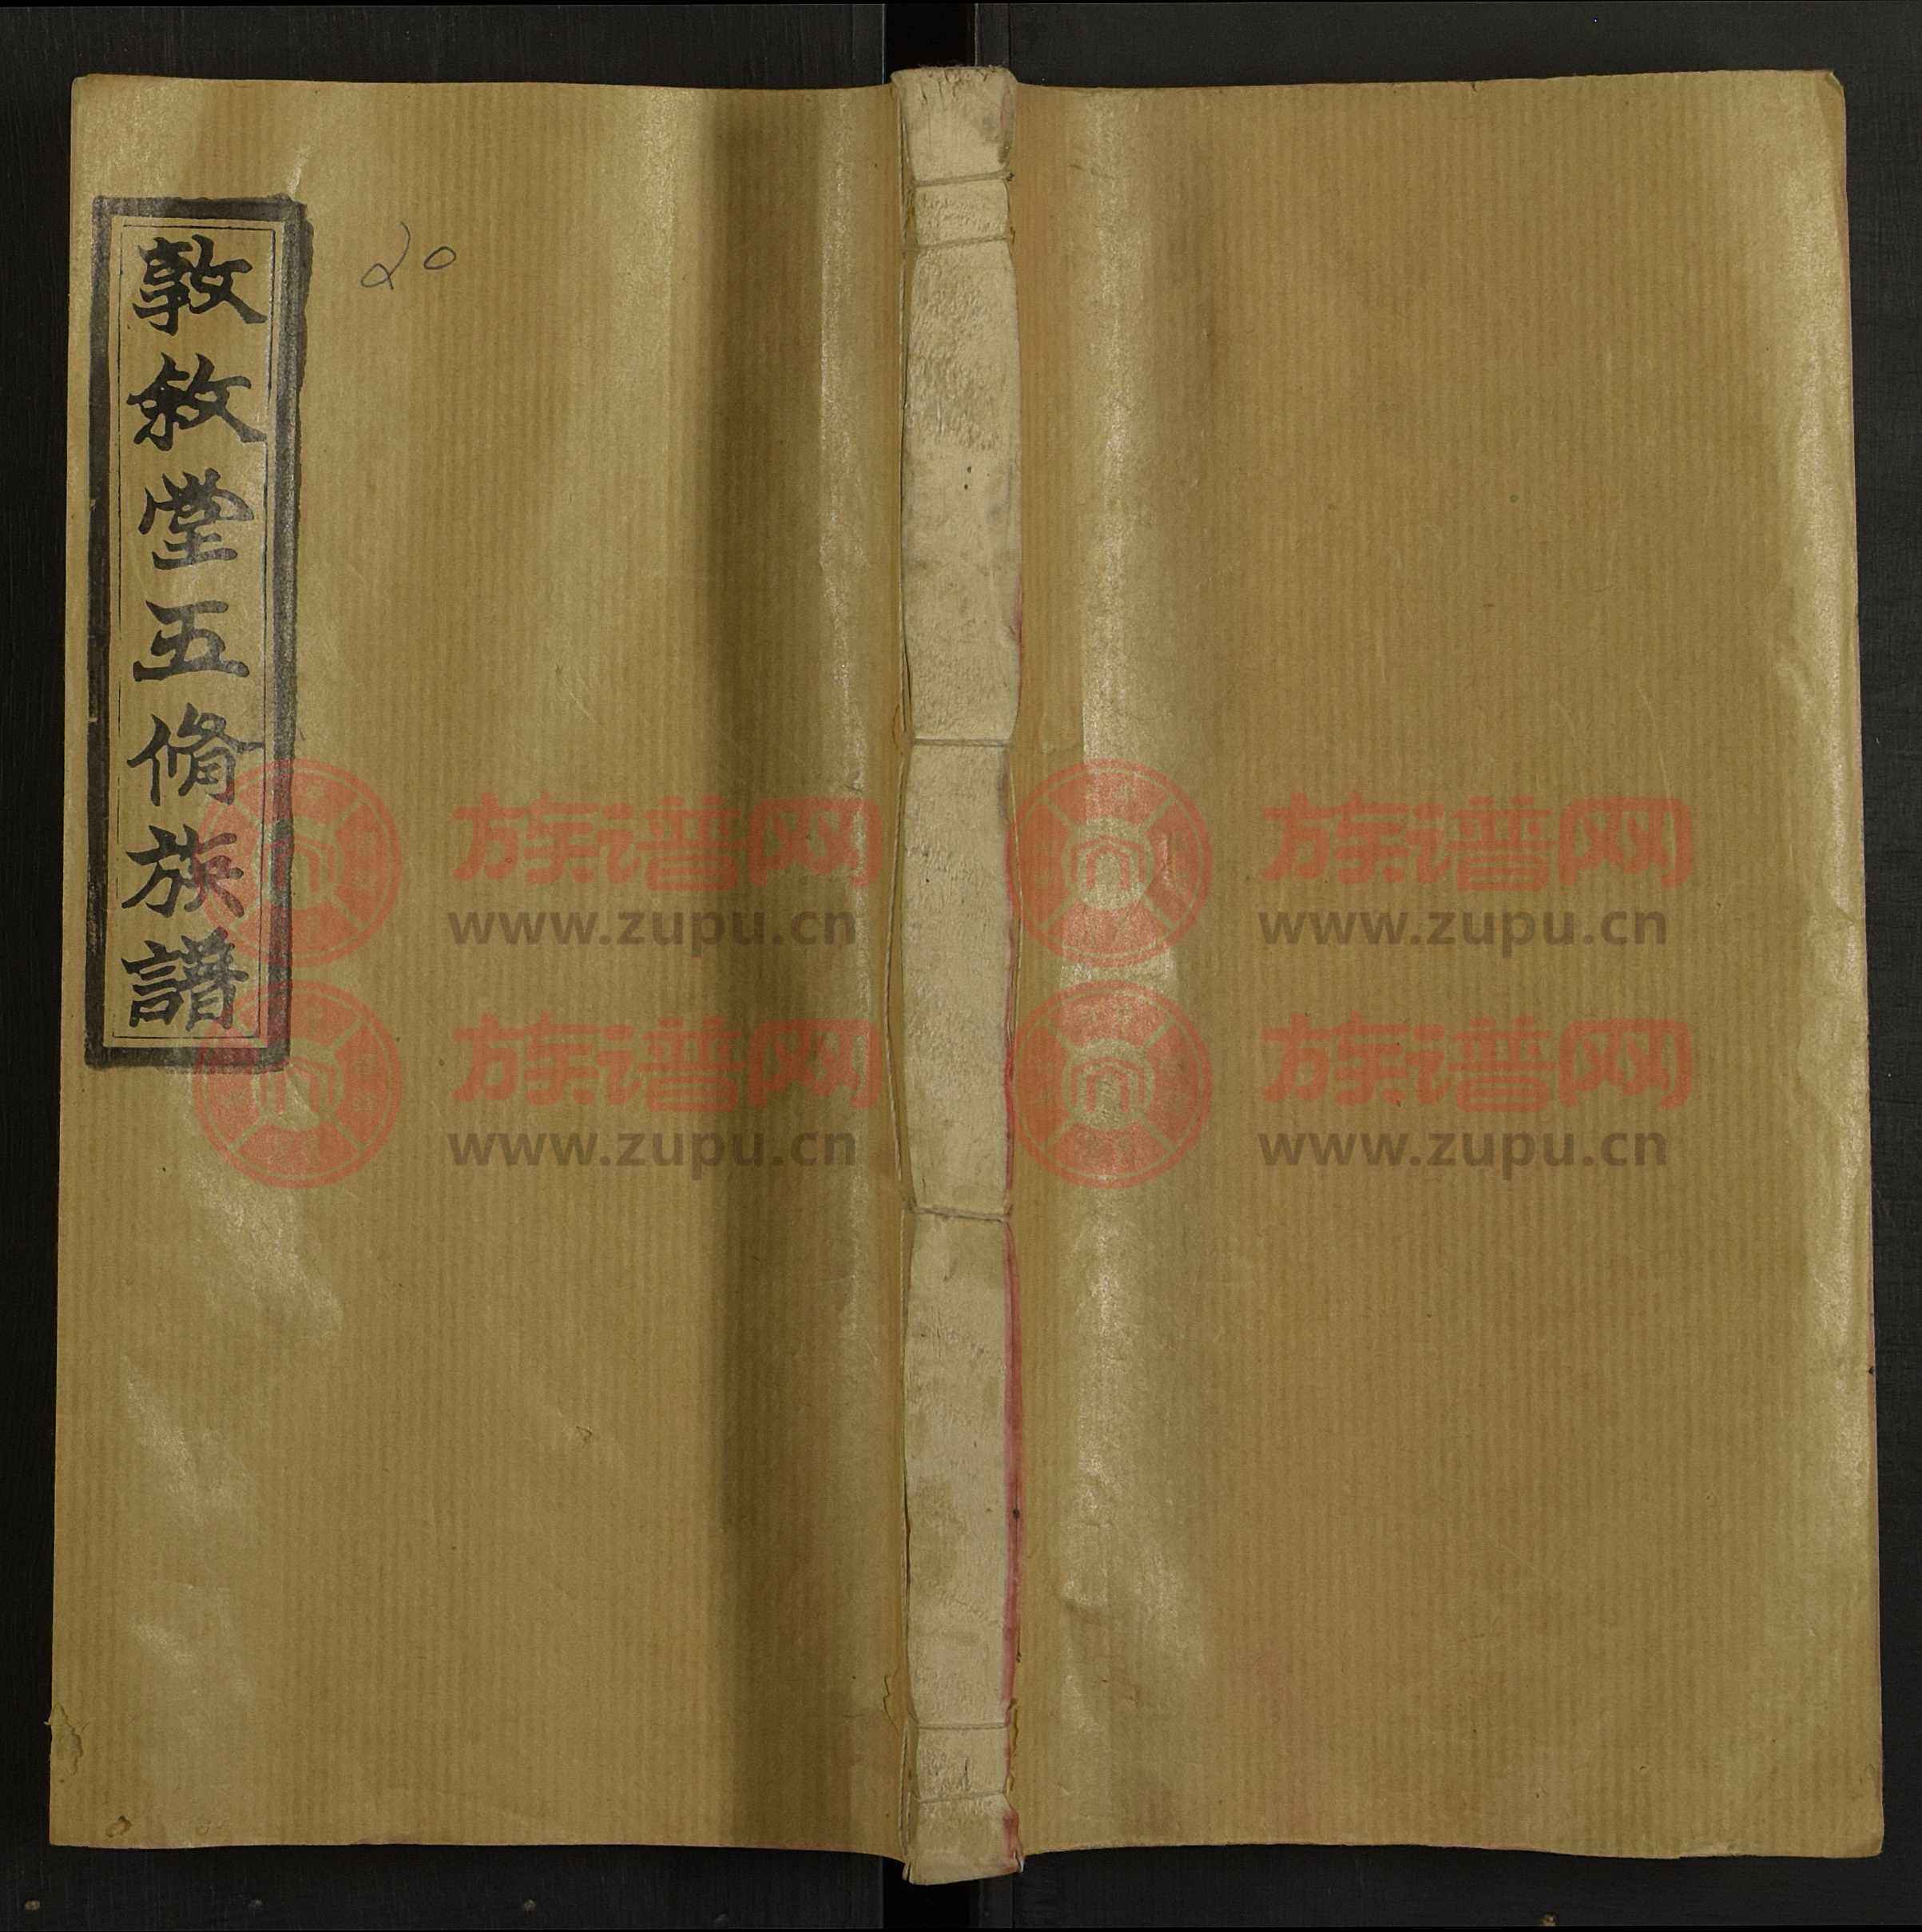 敦敘堂五脩族譜
20
族谱网
www.zupu.cn
族谱网
www.zupu.cn
族谱网
www.zupu.cn
族谱网
www.zupu.cn